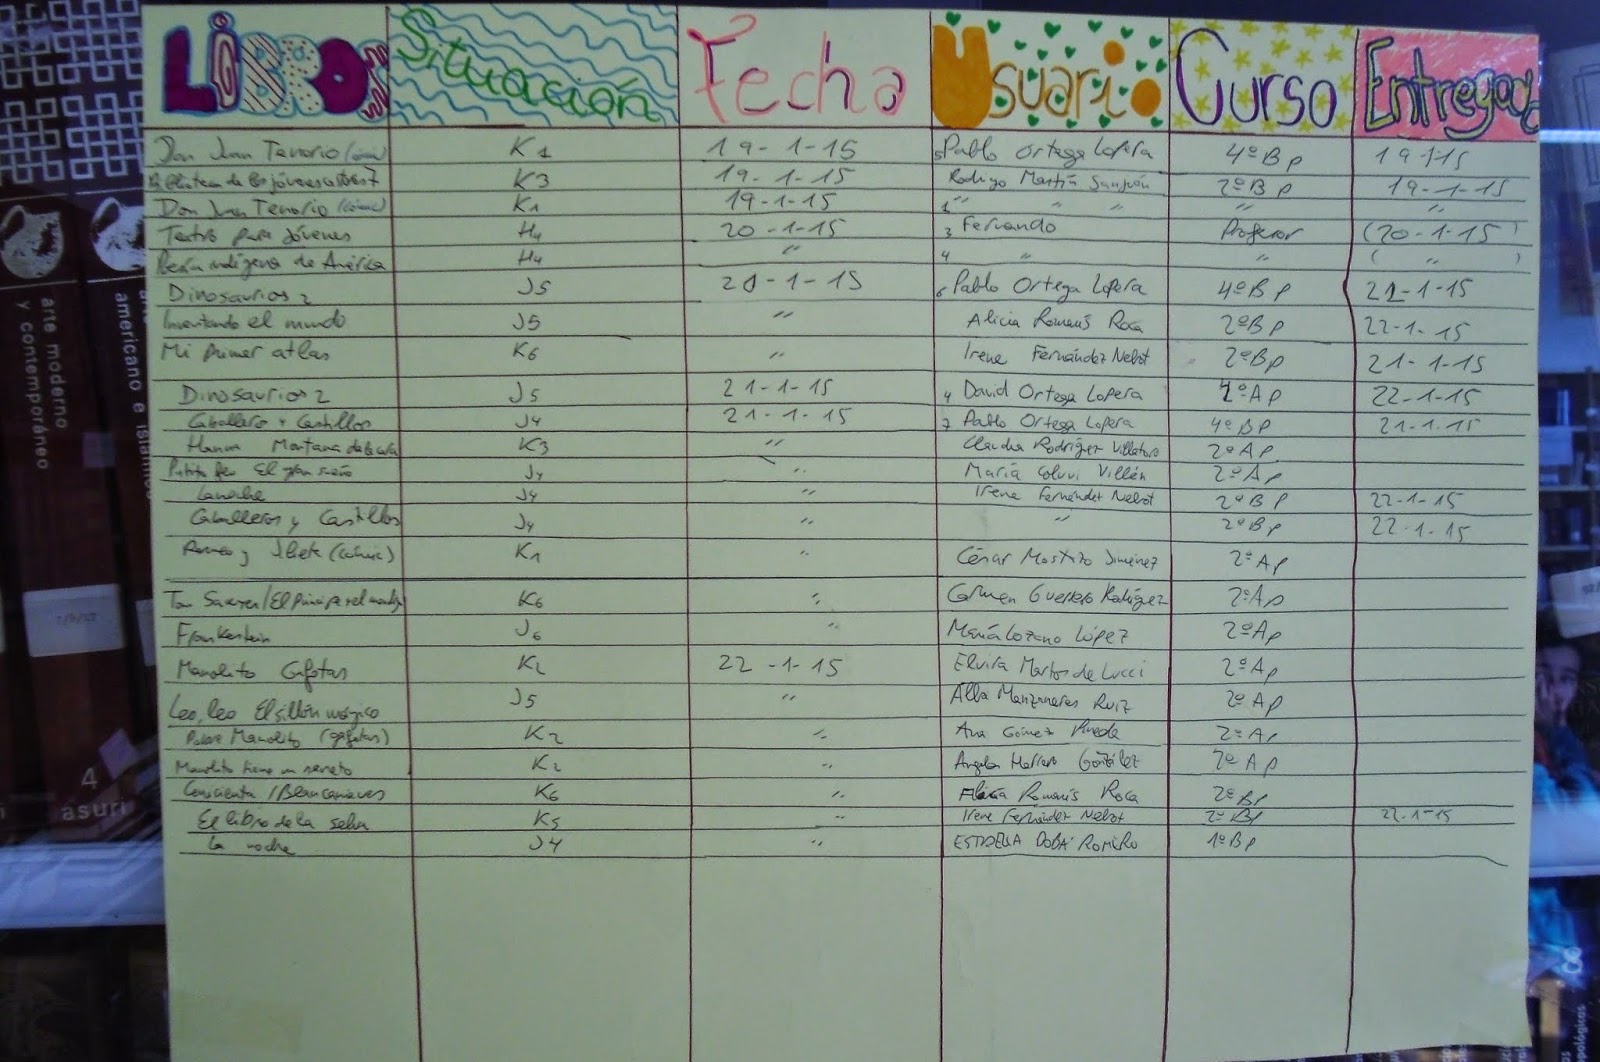 LIBROS Situación Fecha Usuario Curso Entregado
Don Juan Tenorio (cómic) K1 19-1-15 5 Pablo Ortega Lopera 4ºBp 19-1-15
Biblioteca de los jóvenes K3 19-1-15 Rodrigo Martín 2ºBp 19-1-15
Don Juan Tenorio (cómic) K1 19-1-15 1 " " " " "
Teatro para Jóvenes H4 20-1-15 3 Fernando Profesor (20-1-15)
Poesía indígena de América H4 " 4 " " ( " )
Dinosaurios 2 J5 21-1-15 6 Pablo Ortega Lopera 4ºBp 21-1-15
Inventando el mundo J5 " Alicia Romanís Roca 2ºBp 22-1-15
Mi primer atlas K6 " Irene Fernández Nebot 2ºBp 21-1-15
Dinosaurios 2 J5 21-1-15 4 David Ortega Lopera ºAp 22-1-15
Caballeros y Castillos J4 21-1-15 7 Pablo Ortega Lopera 4ºBp 21-1-15
Montana K3 " Claudia Rodríguez Villatoro 2ºAp
El gran sueño J4 " María Villén 2ºAp
La noche J4 " Irene Fernández Nebot 2ºBp 22-1-15
Caballeros y Castillos J4 " " 2ºBp 22-1-15
Romeo y Julieta (cómic) K1 " César Jiménez 2ºAp
Tom Sawyer/El Príncipe y el mendigo K6 " Carmen Guerrero Rodríguez 2ºAp
Frankestein J6 " María Lozano López 2ºAp
Manolito Gafotas K2 22-1-15 Elvira Martos de Lucci 2ºAp
Leo, leo El sillón mágico J5 " Alba Manzanares Ruiz 2ºAp
Pobre Manolito (gafotas) K2 " Ana Gómez Rueda 2ºAp
Manolito tiene un secreto K2 " Angela González 2ºAp
Cenicienta/Blancanieves K6 " Alicia Romanís Roca 2ºBp
El libro de la selva K5 " Irene Fernández Nebot 2ºBp 22-1-15
La noche J4 " ESTRELLA ROMERO 1ºBp
arte moderno
y contemporáneo
americano e
4
asuri